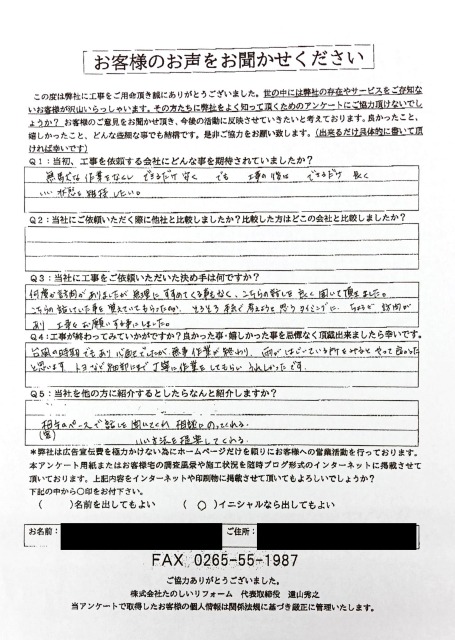 お客様のお声をお聞かせください
この度は弊社に工事をご用命頂き誠にありがとうございました。世の中には弊社の存在やサービスをご存知ない
お客様が沢山いらっしゃいます。その方たちに弊社をよく知って頂くためのアンケートにご協力頂けないでし
ょうか？ お客様のご意見をお聞かせ頂き、今後の活動に反映させていきたいと考えております。良かったこと、
嬉しかったこと、どんな些細な事でも結構です。是非ご協力をお願い致します。（出来るだけ具体的に書いて頂
ければ幸いです）
Q1：当初、工事を依頼する会社にどんな事を期待されていましたか？
作業をなくし できるだけ安く でも 工事の後は できるだけ 長く
いい状態を維持したい。
Q2：当社にご依頼いただく際に他社と比較しましたか？比較した方はどこの会社と比較しましたか？
Q3：当社に工事をご依頼いただいた決め手は何ですか？
何度か訪問がありましたが 無理にすすめてくる事もなく、こちらの話しを良く聞いて頂きました。
こちらの話していた事を覚えていてもらったのか、そろそろ本気で考えようと思うタイミングに、ちょうど訪問が
あり 工事をお願いする事にしました。
Q4：工事が終わってみていかがですか？良かった事・嬉しかった事を忌憚なく頂戴出来ましたら幸いです。
台風の時期でもあり心配でしたが、無事作業が終わり、雨がはじいている所をみるとやって良かった
と思います トヨなど細部にまで丁寧に作業をしてもらい うれしかったです。
Q5：当社を他の方に紹介するとしたらなんと紹介しますか？
相手のペースで話しを聞いてくれ 相談にのってくれる。
(客)
いい方法を提案してくれる。
＊弊社は広告宣伝費を極力かけない為にホームページだけを頼りにお客様への営業活動を行っております。
本アンケート用紙またはお客様宅の調査風景や施工状況を随時ブログ形式のインターネットに掲載させて
頂いております。上記内容をインターネットや印刷物に掲載させて頂いてもよろしいでしょうか？
下記の中から〇印をお付下さい。
（　　）名前を出してもよい　　（ 〇 ）イニシャルなら出してもよい
お名前： ご住所：
FAX 0265-55-1987
ご協力ありがとうございました。
株式会社たのしいリフォーム 代表取締役 遠山秀之
当アンケートで取得したお客様の個人情報は関係法規に基づき厳正に管理いたします。